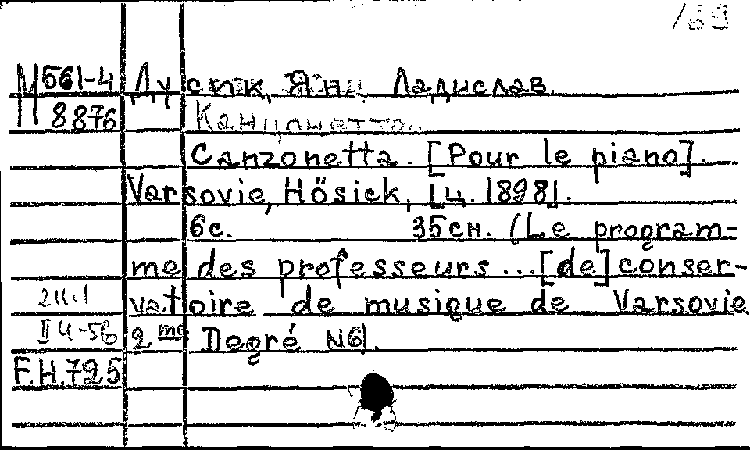 169
М561-4 Дусик, Ян Ладислав.
8876 Канцонетта.
Canzonetta. [Pour le piano].
Varsovie, Hösick, [ц. 1898].
6с. 35сн. (Le program-
me des professeurs...[de] conser-
vatoire de musique de Varsovie
II 4-56 2me Degré №6).
F.H.725